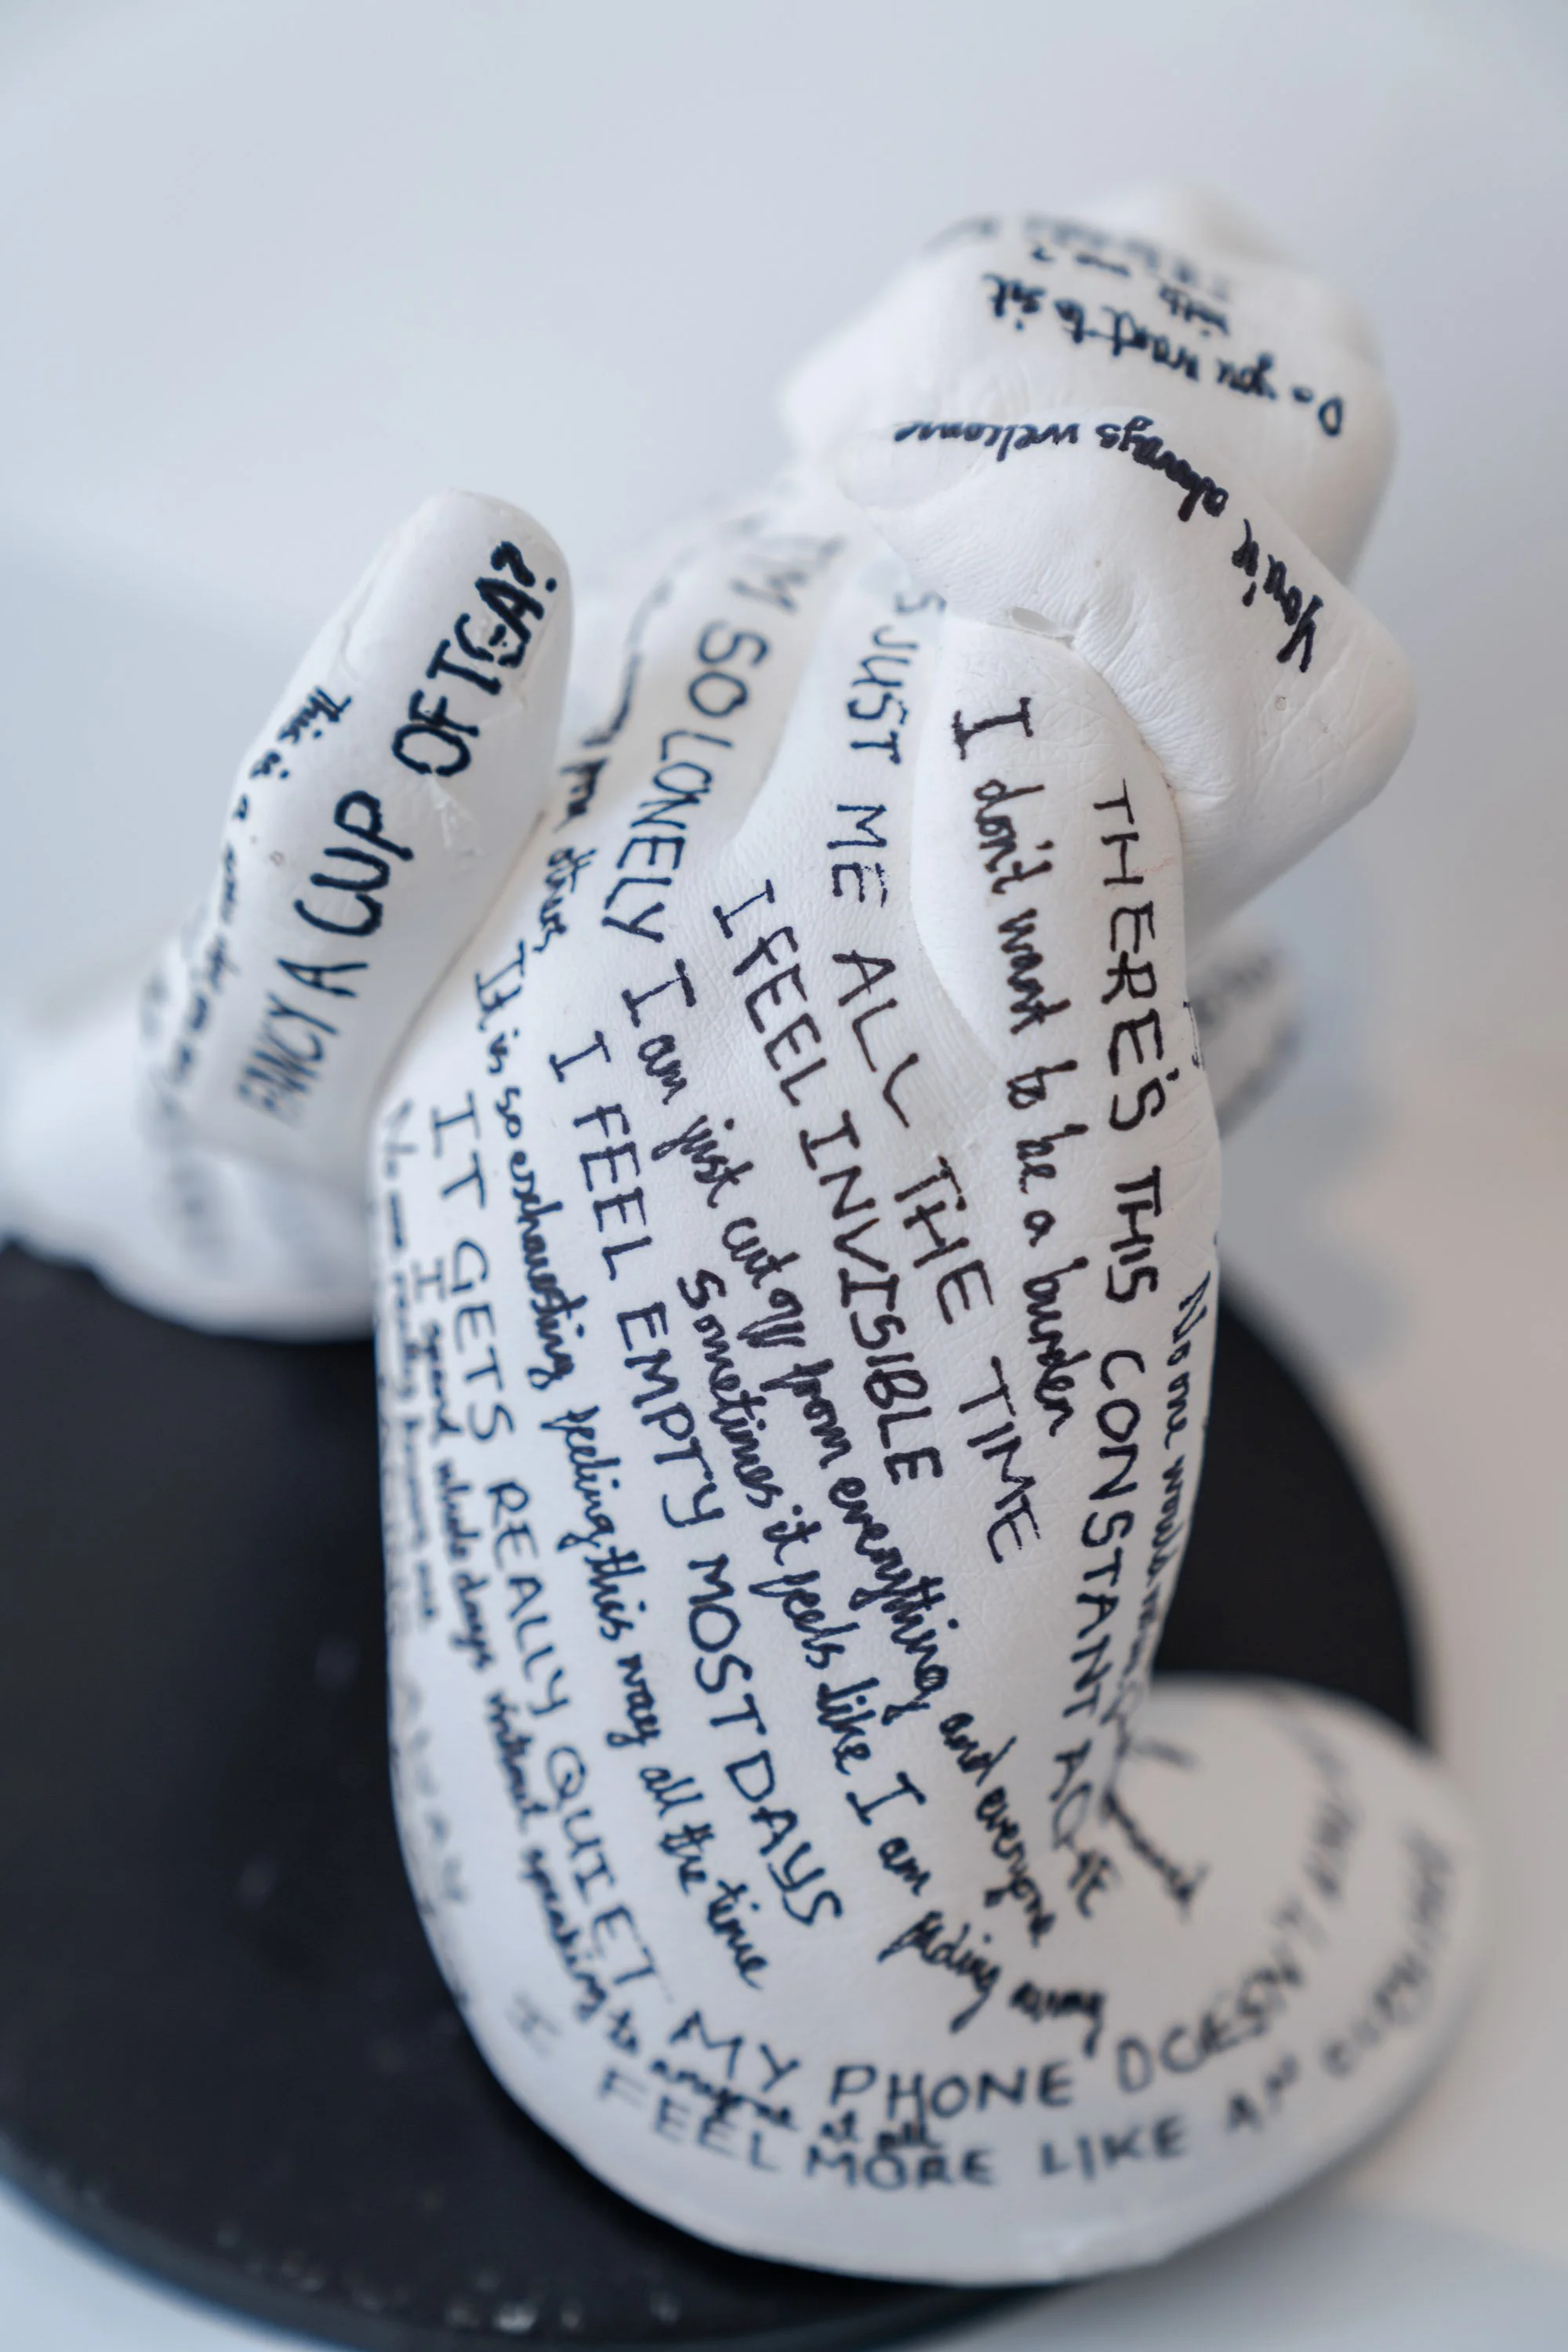 Do you want to sit
with me?
You're always welcome
FANCY A CUP OF TEA?
This is a
I'M SO LONELY
S JUST ME ALL THE TIME
I don't want to be a burden
THERE'S THIS CONSTANT ACHE
No one would
I FEEL INVISIBLE
I am just cut off from everything and everyone
Sometimes it feels like I am fading away
I FEEL EMPTY MOST DAYS
It is so exhausting feeling this way all the time
IT GETS REALLY QUIET
I spend whole days without speaking to anyone at all
No one really knows me
MY PHONE DOESN'T
I FEEL MORE LIKE AN